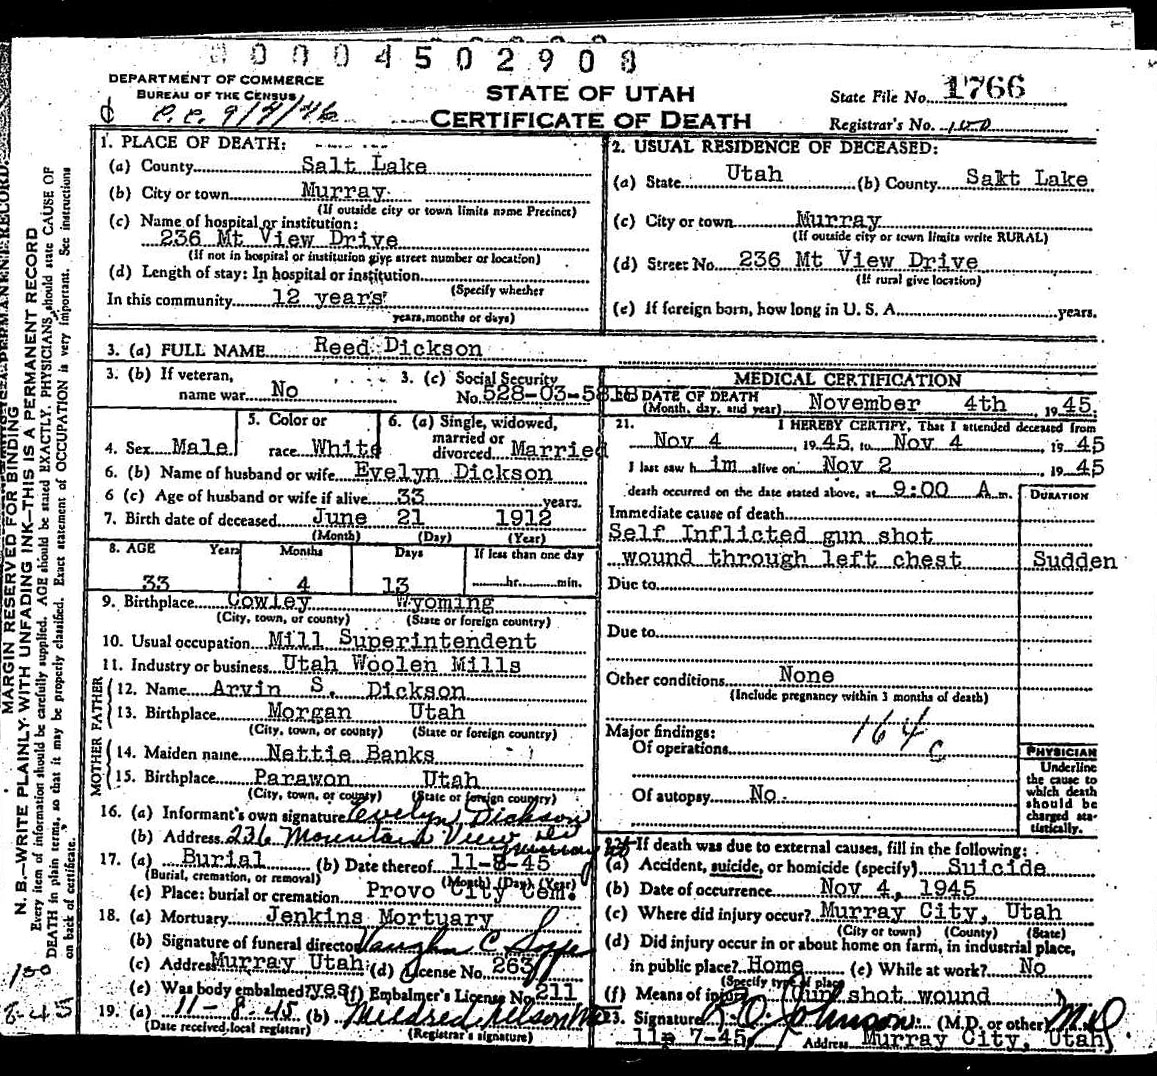 0004502908
DEPARTMENT OF COMMERCE
BUREAU OF THE CENSUS
STATE OF UTAH
CERTIFICATE OF DEATH
State File No. 1766
Registrar's No.
1. PLACE OF DEATH:
(a) County Salt Lake
(b) City or town Murray
(If outside city or town limits name Precinct)
(c) Name of hospital or institution:
236 Mt View Drive
(If not in hospital or institution give street number or location)
(d) Length of stay: In hospital or institution
(Specify whether
In this community 12 years
years, months or days)
2. USUAL RESIDENCE OF DECEASED:
(a) State Utah (b) County Sakt Lake
(c) City or town Murray
(If outside city or town limits write RURAL)
(d) Street No. 236 Mt View Drive
(If rural give location)
(e) If foreign born, how long in U. S. A. years.
3. (a) FULL NAME Reed Dickson
3. (b) If veteran, name war No
3. (c) Social Security No. 528-03-5818
4. Sex Male
5. Color or race White
6. (a) Single, widowed, married or divorced Married
6. (b) Name of husband or wife Evelyn Dickson
6 (c) Age of husband or wife if alive 33 years.
7. Birth date of deceased June 21 1912
(Month) (Day) (Year)
8. AGE Years Months Days If less than one day
33 4 13 hr. min.
9. Birthplace Cowley Wyoming
(City, town, or county) (State or foreign country)
10. Usual occupation Mill Superintendent
11. Industry or business Utah Woolen Mills
FATHER
12. Name Arvin S. Dickson
13. Birthplace Morgan Utah
(City, town, or county) (State or foreign country)
MOTHER
14. Maiden name Nettie Banks
15. Birthplace Parawon Utah
(City, town, or county) (State or foreign country)
16. (a) Informant's own signature Evelyn Dickson
(b) Address 236 Mountain View Dr Murray
17. (a) Burial (b) Date thereof 11-8-45
(Burial, cremation, or removal) (Month) (Day) (Year)
(c) Place: burial or cremation Provo City Cem.
18. (a) Mortuary Jenkins Mortuary
(b) Signature of funeral director Vaughn C
(c) Address Murray Utah (d) License No. 263
(e) Was body embalmed? yes (f) Embalmer's License No. 211
19. (a) 11-8-45 (b) Mildred Nelson
(Date received local registrar) (Registrar's signature)
MEDICAL CERTIFICATION
20 DATE OF DEATH
(Month, day, and year) November 4th 1945
21. I HEREBY CERTIFY, That I attended deceased from
Nov 4, 1945, to Nov 4, 1945
I last saw him alive on Nov 2, 1945
death occurred on the date stated above, at 9:00 A m.
DURATION
Immediate cause of death
Self Inflicted gun shot
wound through left chest Sudden
Due to
Due to
Other conditions None
(Include pregnancy within 3 months of death)
164c
Major findings:
Of operations
Of autopsy No.
PHYSICIAN
Underline
the cause to
which death
should be
charged sta-
tistically.
22. If death was due to external causes, fill in the following:
(a) Accident, suicide, or homicide (specify) Suicide
(b) Date of occurrence Nov 4, 1945
(c) Where did injury occur? Murray City, Utah
(City or town) (County) (State)
(d) Did injury occur in or about home on farm, in industrial place,
in public place? Home (e) While at work? No
(Specify type of place)
(f) Means of injury Gun shot wound
23. Signature Johnson (M.D. or other) M.D.
11 7-45 Address Murray City, Utah
MARGIN RESERVED FOR BINDING
N. B.—WRITE PLAINLY WITH UNFADING INK—THIS IS A PERMANENT RECORD
Every item of information should be carefully supplied. AGE should be stated EXACTLY. PHYSICIANS should state CAUSE OF
DEATH in plain terms, so that it may be properly classified. Exact statement of OCCUPATION is very important. See instructions
on back of certificate.